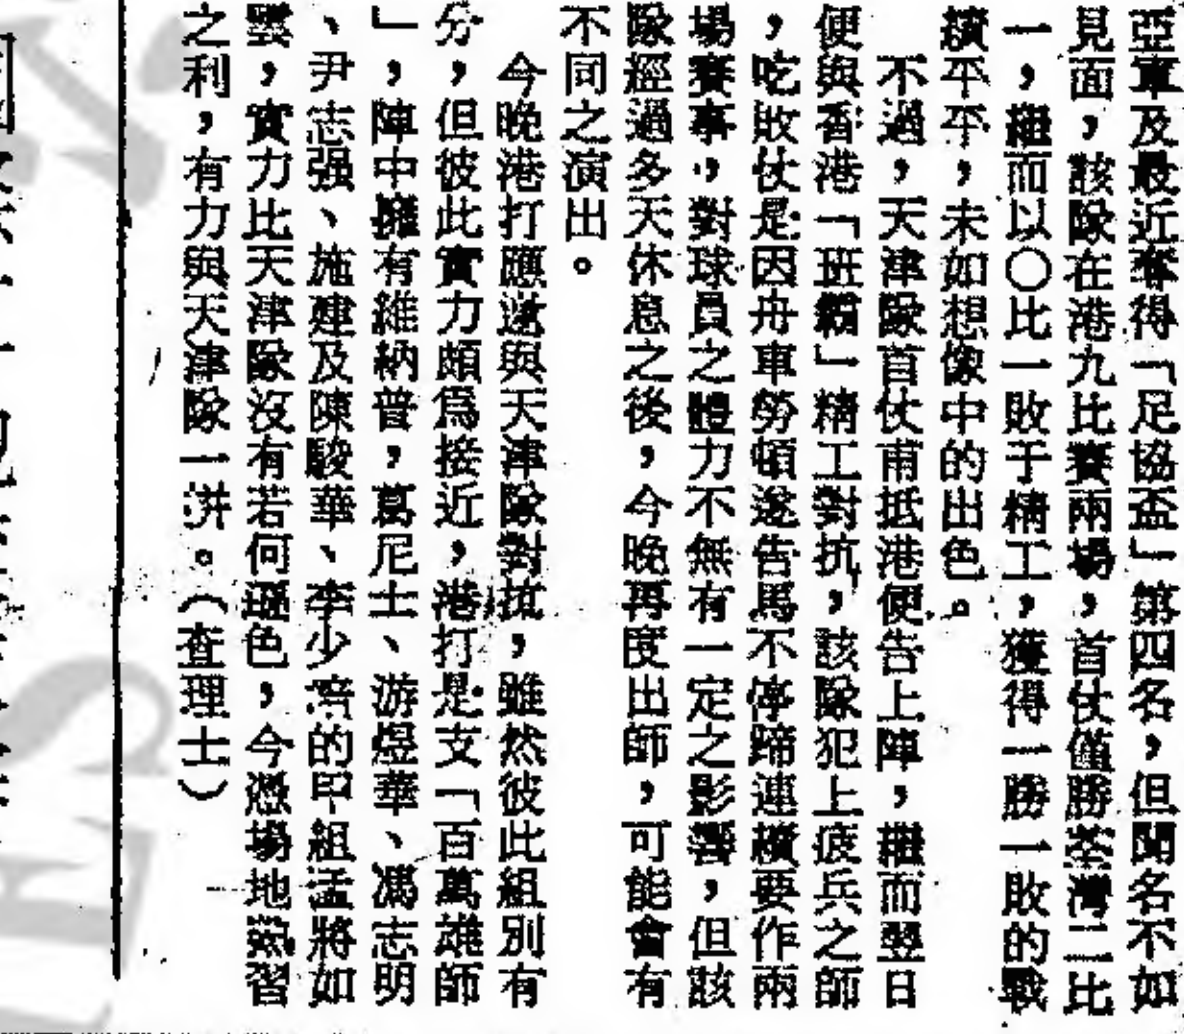 亞軍及最近奪得「足協盃」第四名，但聞名不如
見面，該隊在港九比賽兩場，首仗僅勝荃灣二比
一，繼而以〇比一敗于精工，獲得一勝一敗的戰
績平平，未如想像中的出色。
不過，天津隊首仗甫抵港便告上陣，繼而翌日
便與香港「班霸」精工對抗，該隊犯上疲兵之師
，吃敗仗是因舟車勞頓遂告馬不停蹄連續要作兩
場賽事，對球員之體力不無有一定之影響，但該
隊經過多天休息之後，今晚再度出師，可能會有
不同之演出。
今晚港打應邀與天津隊對抗，雖然彼此組別有
分，但彼此實力頗爲接近，港打是支「百萬雄師
」，陣中擁有維納普，葛尼士、游煜華、馮志明
、尹志强、施建及陳駿華、李少濱的甲組猛將如
雲，實力比天津隊沒有若何遜色，今憑場地熟習
之利，有力與天津隊一拼。（查理士）